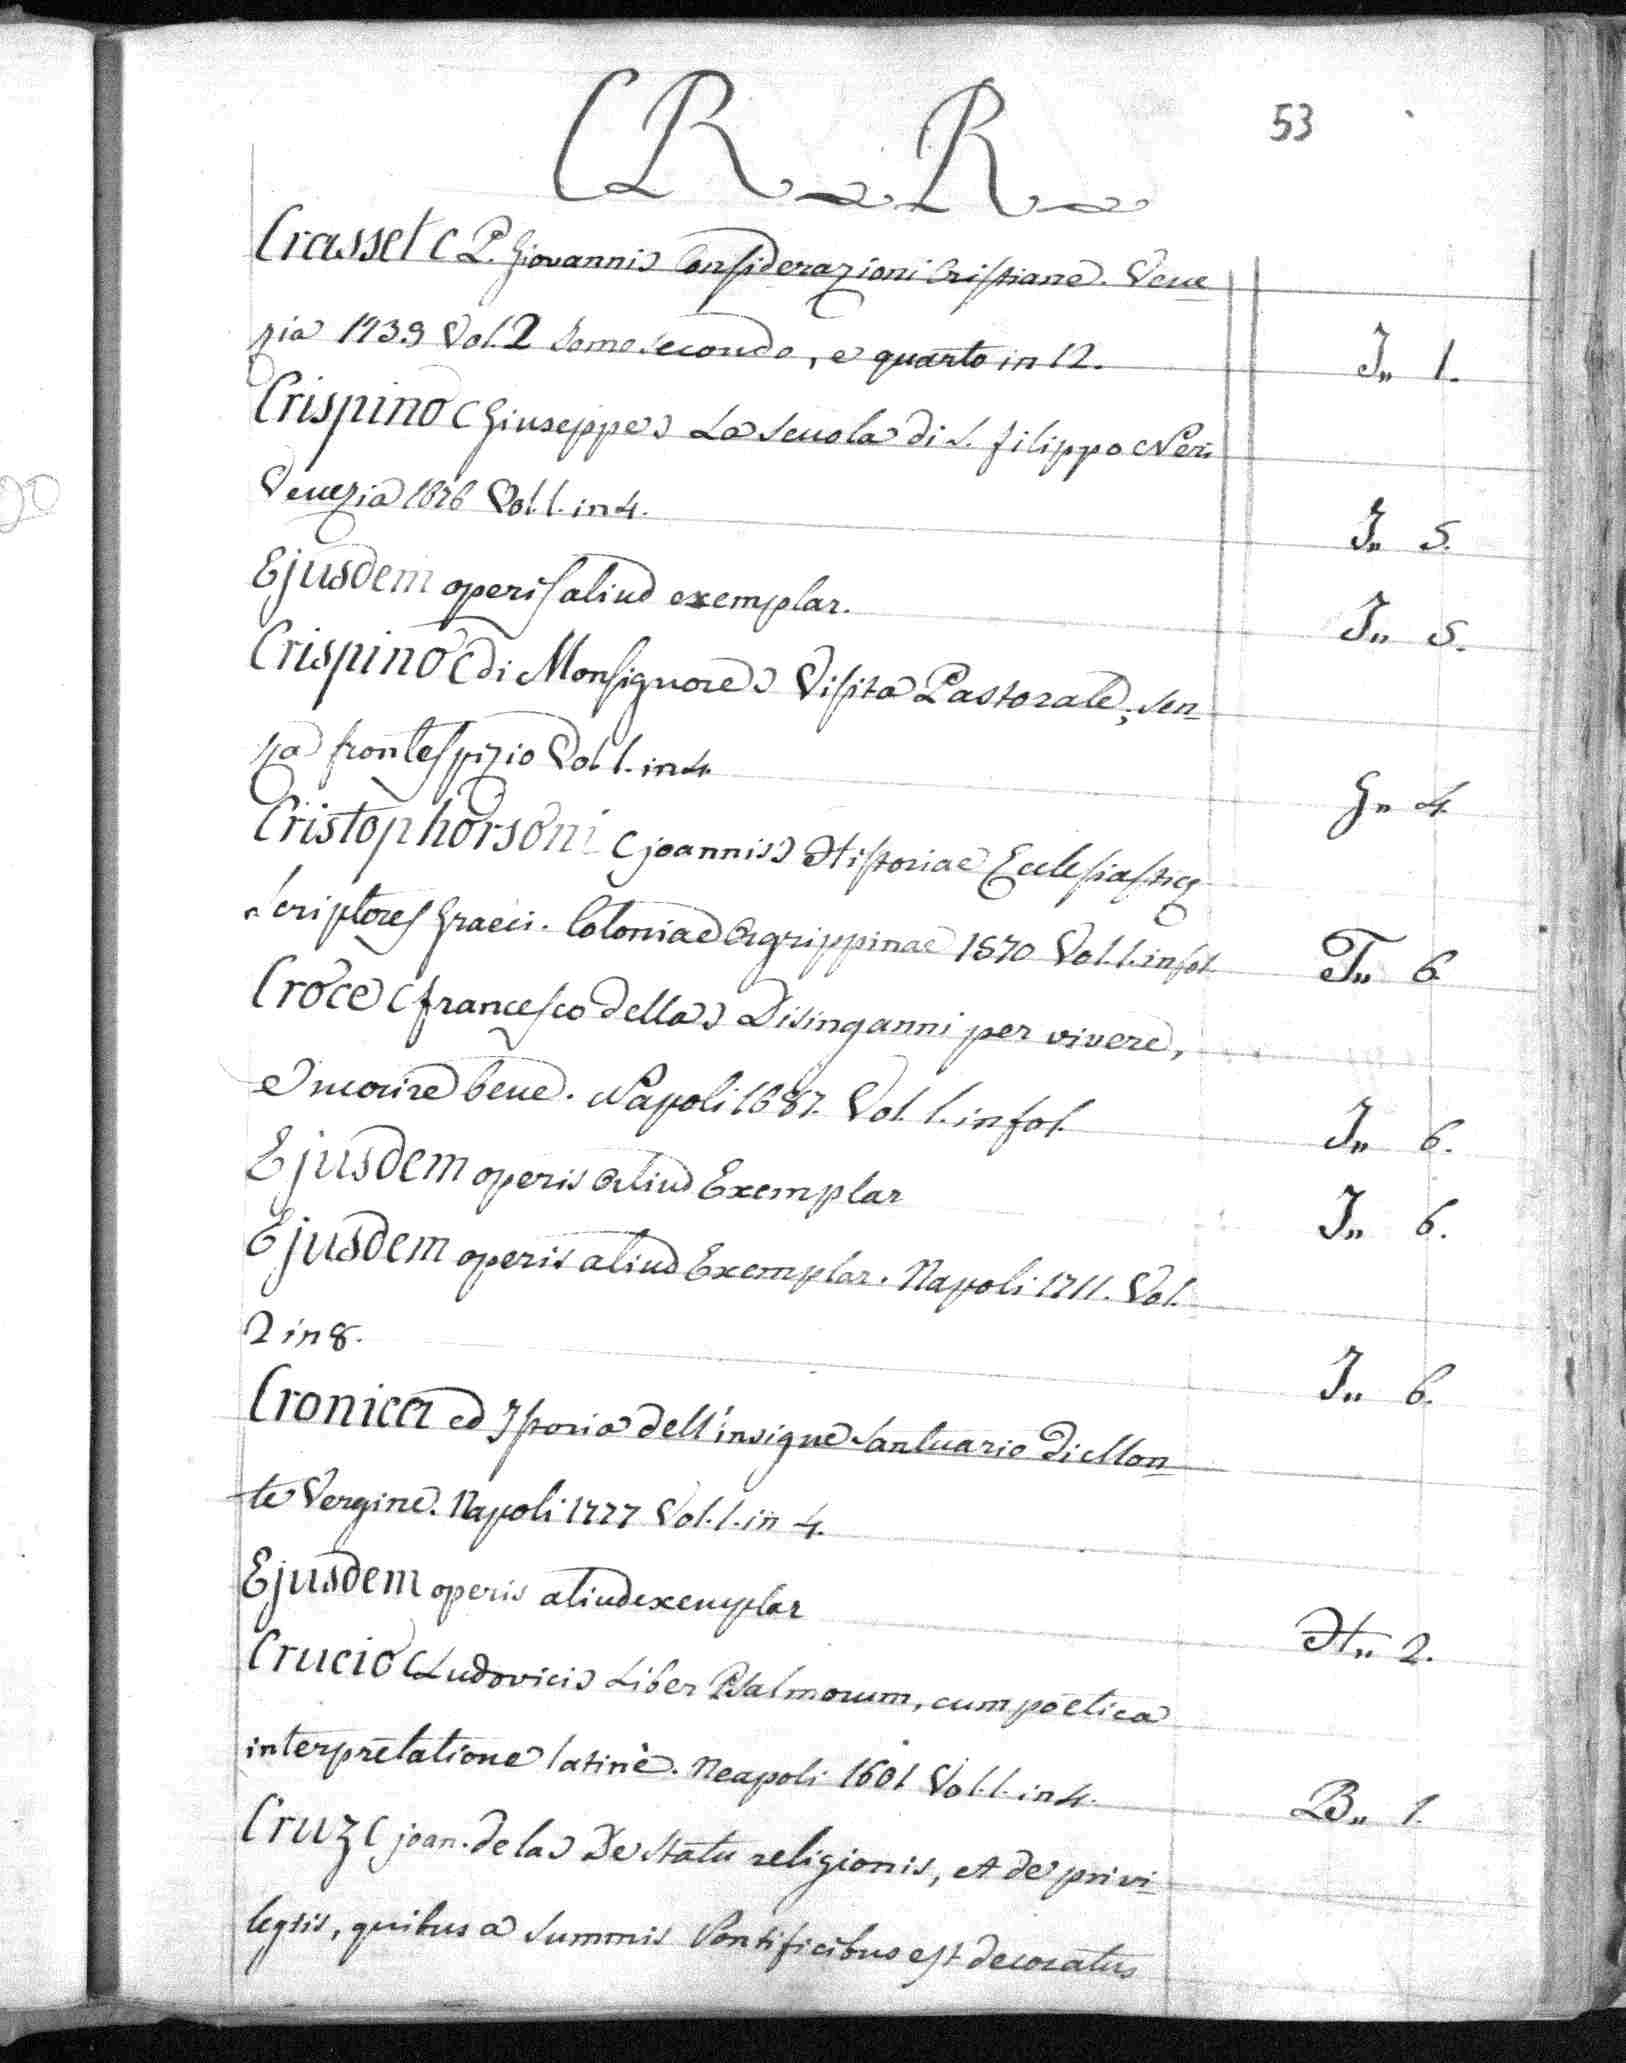 CR R
53
Crasset (P. Giovanni) Considerazioni Cristiane. Vene
zia 1739 Vol. 2 Tomo secondo, e quarto in 12. I,, 1.
Crispino (Giuseppe) La Scuola di S. Filippo Neri
Venezia 1676 Vol. 1. in 4. I,, 5.
Ejusdem operis aliud exemplar. I,, 5.
Crispino (di Monsignore) Visita Pastorale, sen
za frontespizio Vol. 1. in 4. G,, 4.
Cristophorsoni (Joannis) Historiae Ecclesiasticę
Scriptores Graeci. Coloniae Agrippinae 1570 Vol. 1. in fol. T,, 6.
Croce (Francesco della) Disinganni per vivere,
e morire bene. Napoli 1687. Vol. 1. in fol. I,, 6.
Ejusdem operis aliud Exemplar I,, 6.
Ejusdem operis aliud Exemplar. Napoli 1711. Vol.
2 in 8. I,, 6.
Cronica ed Istoria dell'insigne Santuario di Mon
te Vergine. Napoli 1777 Vol. 1. in 4.
Ejusdem operis aliud exemplar H,, 2.
Crucio (Ludovici) Liber Psalmorum, cum poetica
interpretatione latinè. Neapoli 1601 Vol. 1. in 4. B,, 1.
Cruz (Joan. de la) De Statu religionis, et de privi
legiis, quibus a Summis Pontificibus est decoratus